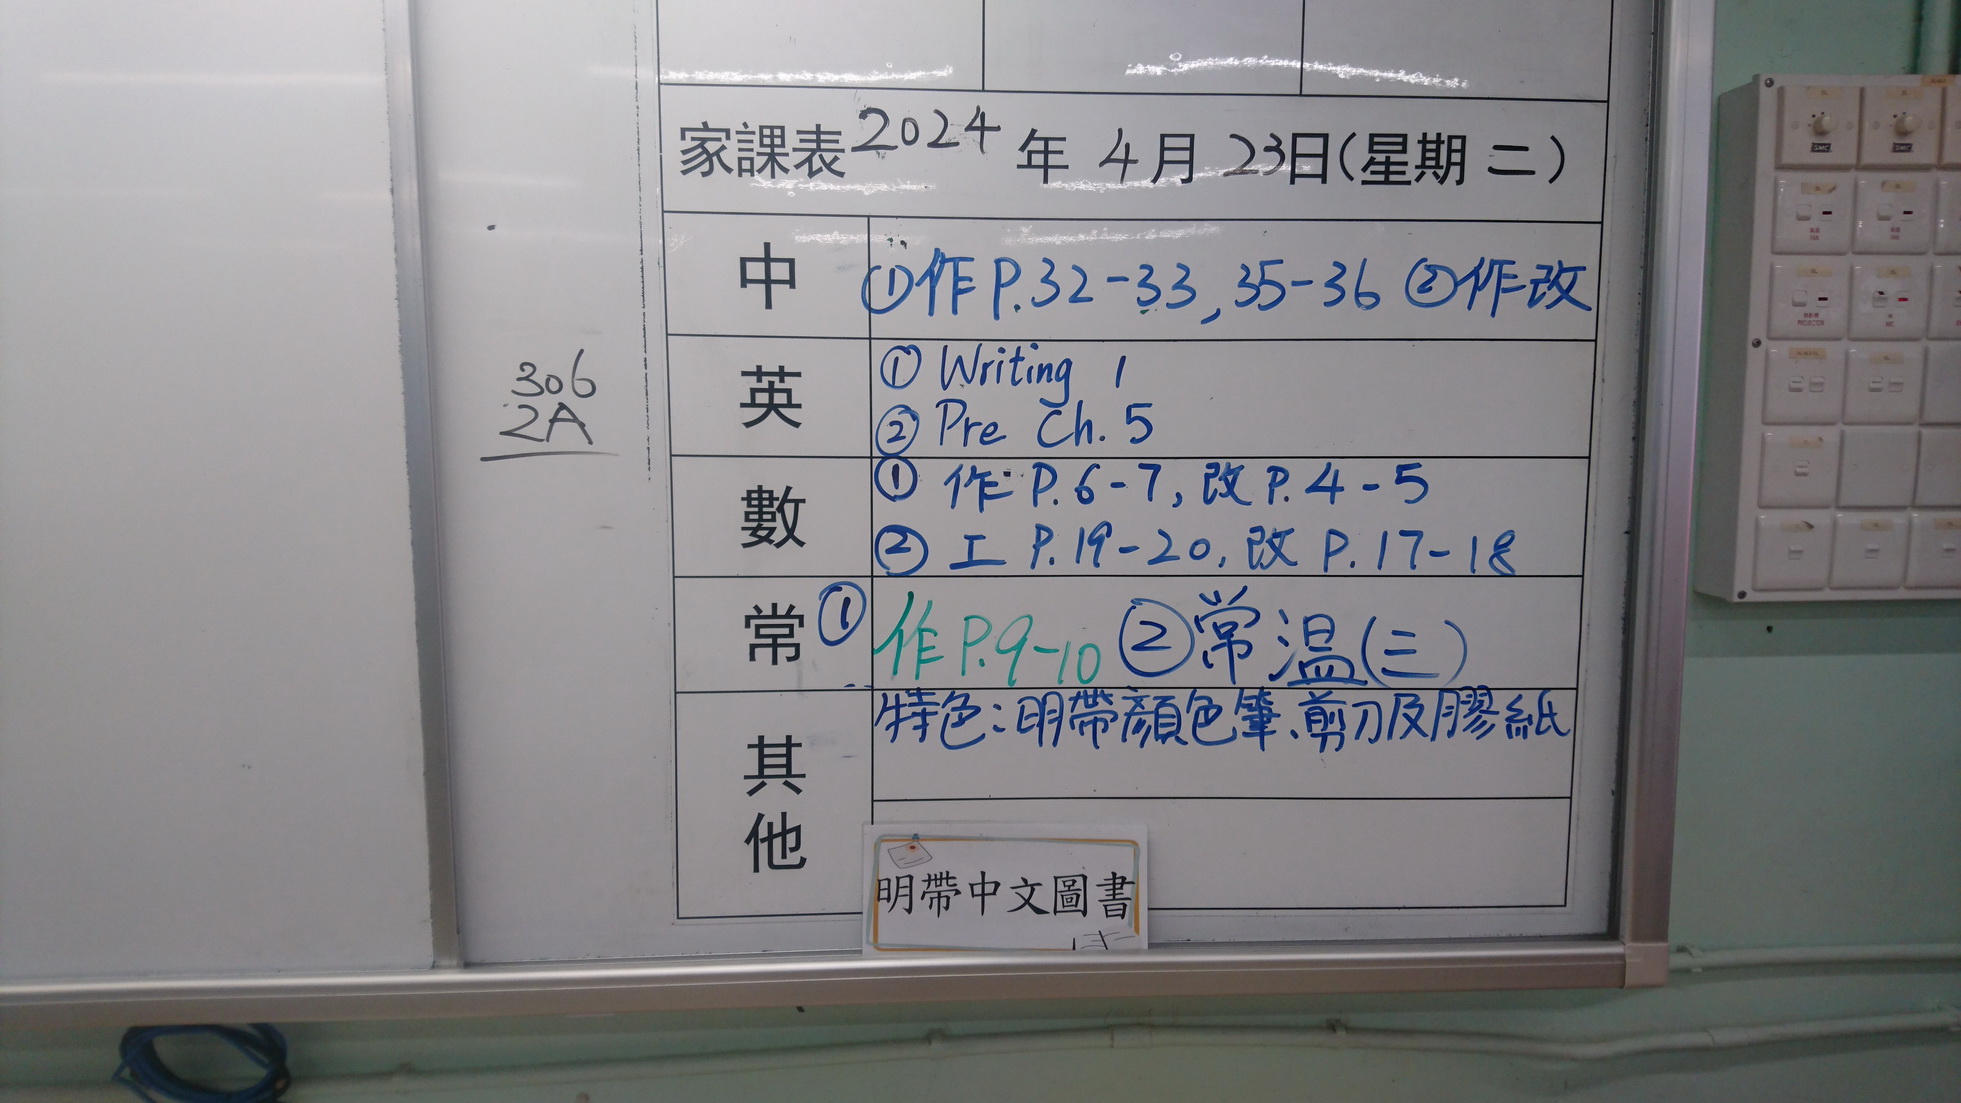 家課表2024年4月23日(星期二)
306
2A
中
①作P.32-33,35-36 ②作改
英
① Writing 1
② Pre Ch. 5
數
① 作 P.6-7, 改 P.4-5
② 工 P.19-20, 改 P.17-18
常
① 作P.9-10 ②常溫(三)
其他
特色:明帶顏色筆、剪刀及膠紙
明帶中文圖書